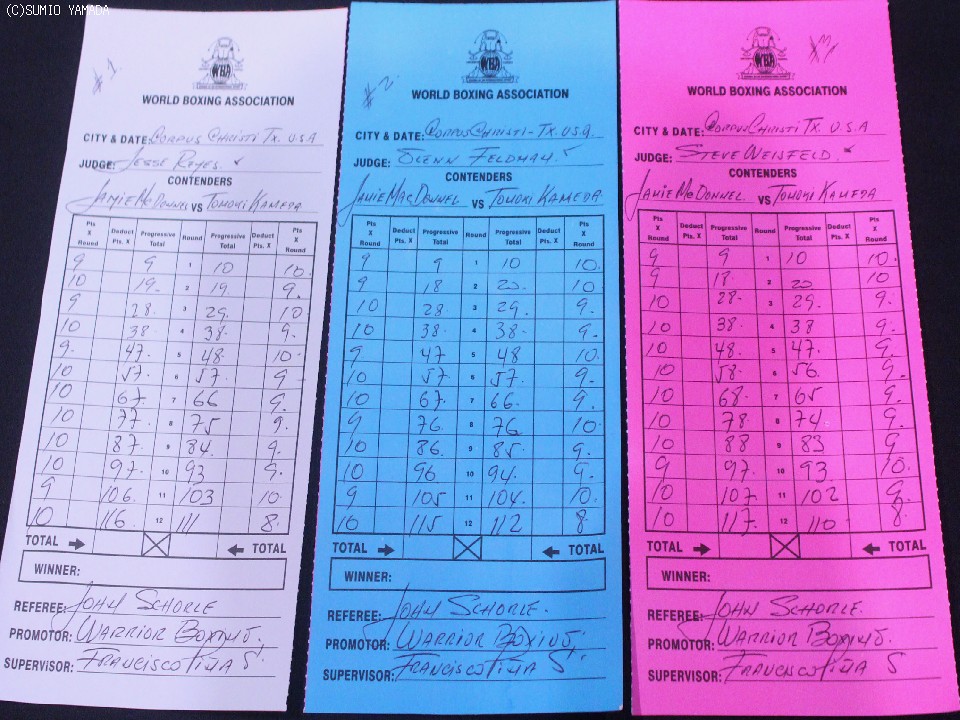 (C)SUMIO YAMADA
#1
WBA
WORLD BOXING ASSOCIATION
CITY & DATE: CORPUS CHRISTI TX. U.S.A
JUDGE: JESSE REYES.
CONTENDERS
JAMIE McDONNEL VS TOMOKI KAMEDA
Pts X Round Deduct Pts. X Progressive Total Round Progressive Total Deduct Pts. X Pts X Round
9 9 1 10 10.
10 19. 2 19 9.
9 28. 3 29. 10
10 38. 4 38. 9.
9. 47. 5 48. 10.
10 57. 6 57. 9.
10 67. 7 66 9.
10 77. 8 75 9.
10 87. 9 84. 9.
10 97. 10 93 9.
9 106. 11 103 10.
10 116. 12 111 8.
TOTAL TOTAL
WINNER:
REFEREE: JOHN SCHORLE
PROMOTOR: WARRIOR BOXING.
SUPERVISOR: FRANCISCO PIÑA S
#2
WBA
WORLD BOXING ASSOCIATION
CITY & DATE: CORPUS CHRISTI - TX. USA.
JUDGE: GLENN FELDMAN
CONTENDERS
JAMIE MACDONNEL VS TOMOKI KAMEDA
Pts X Round Deduct Pts. X Progressive Total Round Progressive Total Deduct Pts. X Pts X Round
9 9 1 10 10.
9 18 2 20. 10
10 28 3 29. 9.
10 38. 4 38. 9.
9 47 5 48 10.
10 57 6 57. 9.
10 67. 7 66. 9.
9 76. 8 76 10.
10 86. 9 85. 9.
10 96 10 94. 9.
9 105 11 104. 10.
10 115 12 112 8
TOTAL TOTAL
WINNER:
REFEREE: JOHN SCHORLE.
PROMOTOR: WARRIOR BOXING.
SUPERVISOR: FRANCISCO PIÑA S
#3
WBA
WORLD BOXING ASSOCIATION
CITY & DATE: CORPUS CHRISTI TX. U.S.A
JUDGE: STEVE WEISFELD.
CONTENDERS
JAMIE McDONNEL VS TOMOKI KAMEDA
Pts X Round Deduct Pts. X Progressive Total Round Progressive Total Deduct Pts. X Pts X Round
9 9 1 10 10.
9 18. 2 20 10
10 28. 3 29. 9.
10 38. 4 38 9.
10 48. 5 47. 9.
10 58. 6 56. 9.
10 68. 7 65 9.
10 78. 8 74 9.
10 88 9 83 9.
9 97. 10 93 10.
10 107 11 102 9.
10 117. 12 110 8.
TOTAL TOTAL
WINNER:
REFEREE: JOHN SCHORLE.
PROMOTOR: WARRIOR BOXING.
SUPERVISOR: FRANCISCO PIÑA S